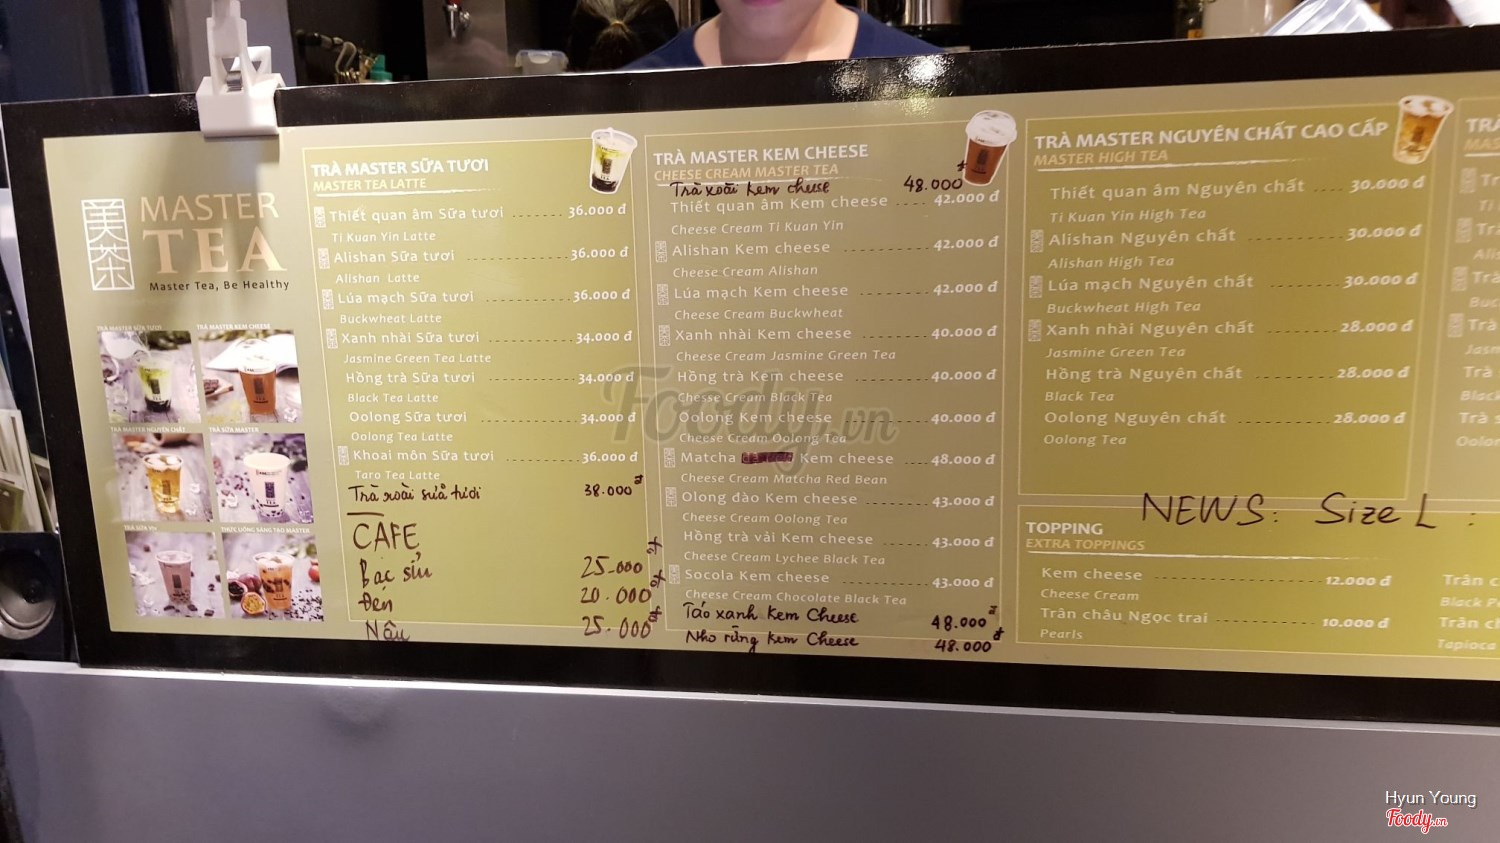 漢茶
MASTER
TEA
Master Tea, Be Healthy
TRÀ MASTER SỮA TƯƠI
TRÀ MASTER KEM CHEESE
TRÀ MASTER NGUYÊN CHẤT
TRÀ SỮA MASTER
THỨC UỐNG SÁNG TẠO MASTER
TRÀ MASTER SỮA TƯƠI
MASTER TEA LATTE
Thiết quan âm Sữa tươi 36.000 đ
Ti Kuan Yin Latte
Alishan Sữa tươi 36.000 đ
Alishan Latte
Lúa mạch Sữa tươi 36.000 đ
Buckwheat Latte
Xanh nhài Sữa tươi 34.000 đ
Jasmine Green Tea Latte
Hồng trà Sữa tươi 34.000 đ
Black Tea Latte
Oolong Sữa tươi 34.000 đ
Oolong Tea Latte
Khoai môn Sữa tươi 36.000 đ
Taro Tea Latte
Trà xoài sữa tươi 38.000 đ
CAFE
Bạc sỉu 25.000 đ
Đen 20.000 đ
Nâu 25.000 đ
TRÀ MASTER KEM CHEESE
CHEESE CREAM MASTER TEA
Trà xoài Kem cheese 48.000 đ
Thiết quan âm Kem cheese 42.000 đ
Cheese Cream Ti Kuan Yin
Alishan Kem cheese 42.000 đ
Cheese Cream Alishan
Lúa mạch Kem cheese 42.000 đ
Cheese Cream Buckwheat
Xanh nhài Kem cheese 40.000 đ
Cheese Cream Jasmine Green Tea
Hồng trà Kem cheese 40.000 đ
Chesse Cream Black Tea
Oolong Kem cheese 40.000 đ
Cheese Cream Oolong Tea
Matcha Kem cheese 48.000 đ
Cheese Cream Matcha Red Bean
Olong đào Kem cheese 43.000 đ
Cheese Cream Oolong Tea
Hồng trà vải Kem cheese 43.000 đ
Cheese Cream Lychee Black Tea
Socola Kem cheese 43.000 đ
Cheese Cream Chocolate Black Tea
Táo xanh Kem Cheese 48.000 đ
Nho rừng Kem Cheese 48.000 đ
TRÀ MASTER NGUYÊN CHẤT CAO CẤP
MASTER HIGH TEA
Thiết quan âm Nguyên chất 30.000 đ
Ti Kuan Yin High Tea
Alishan Nguyên chất 30.000 đ
Alishan High Tea
Lúa mạch Nguyên chất 30.000 đ
Buckwheat High Tea
Xanh nhài Nguyên chất 28.000 đ
Jasmine Green Tea
Hồng trà Nguyên chất 28.000 đ
Black Tea
Oolong Nguyên chất 28.000 đ
Oolong Tea
NEWS: Size L :
TOPPING
EXTRA TOPPINGS
Kem cheese 12.000 đ
Cheese Cream
Trân châu Ngọc trai 10.000 đ
Pearls
Trân c
Black P
Trân ch
Tapioca
Foody.vn
Hyun Young
Foody.vn